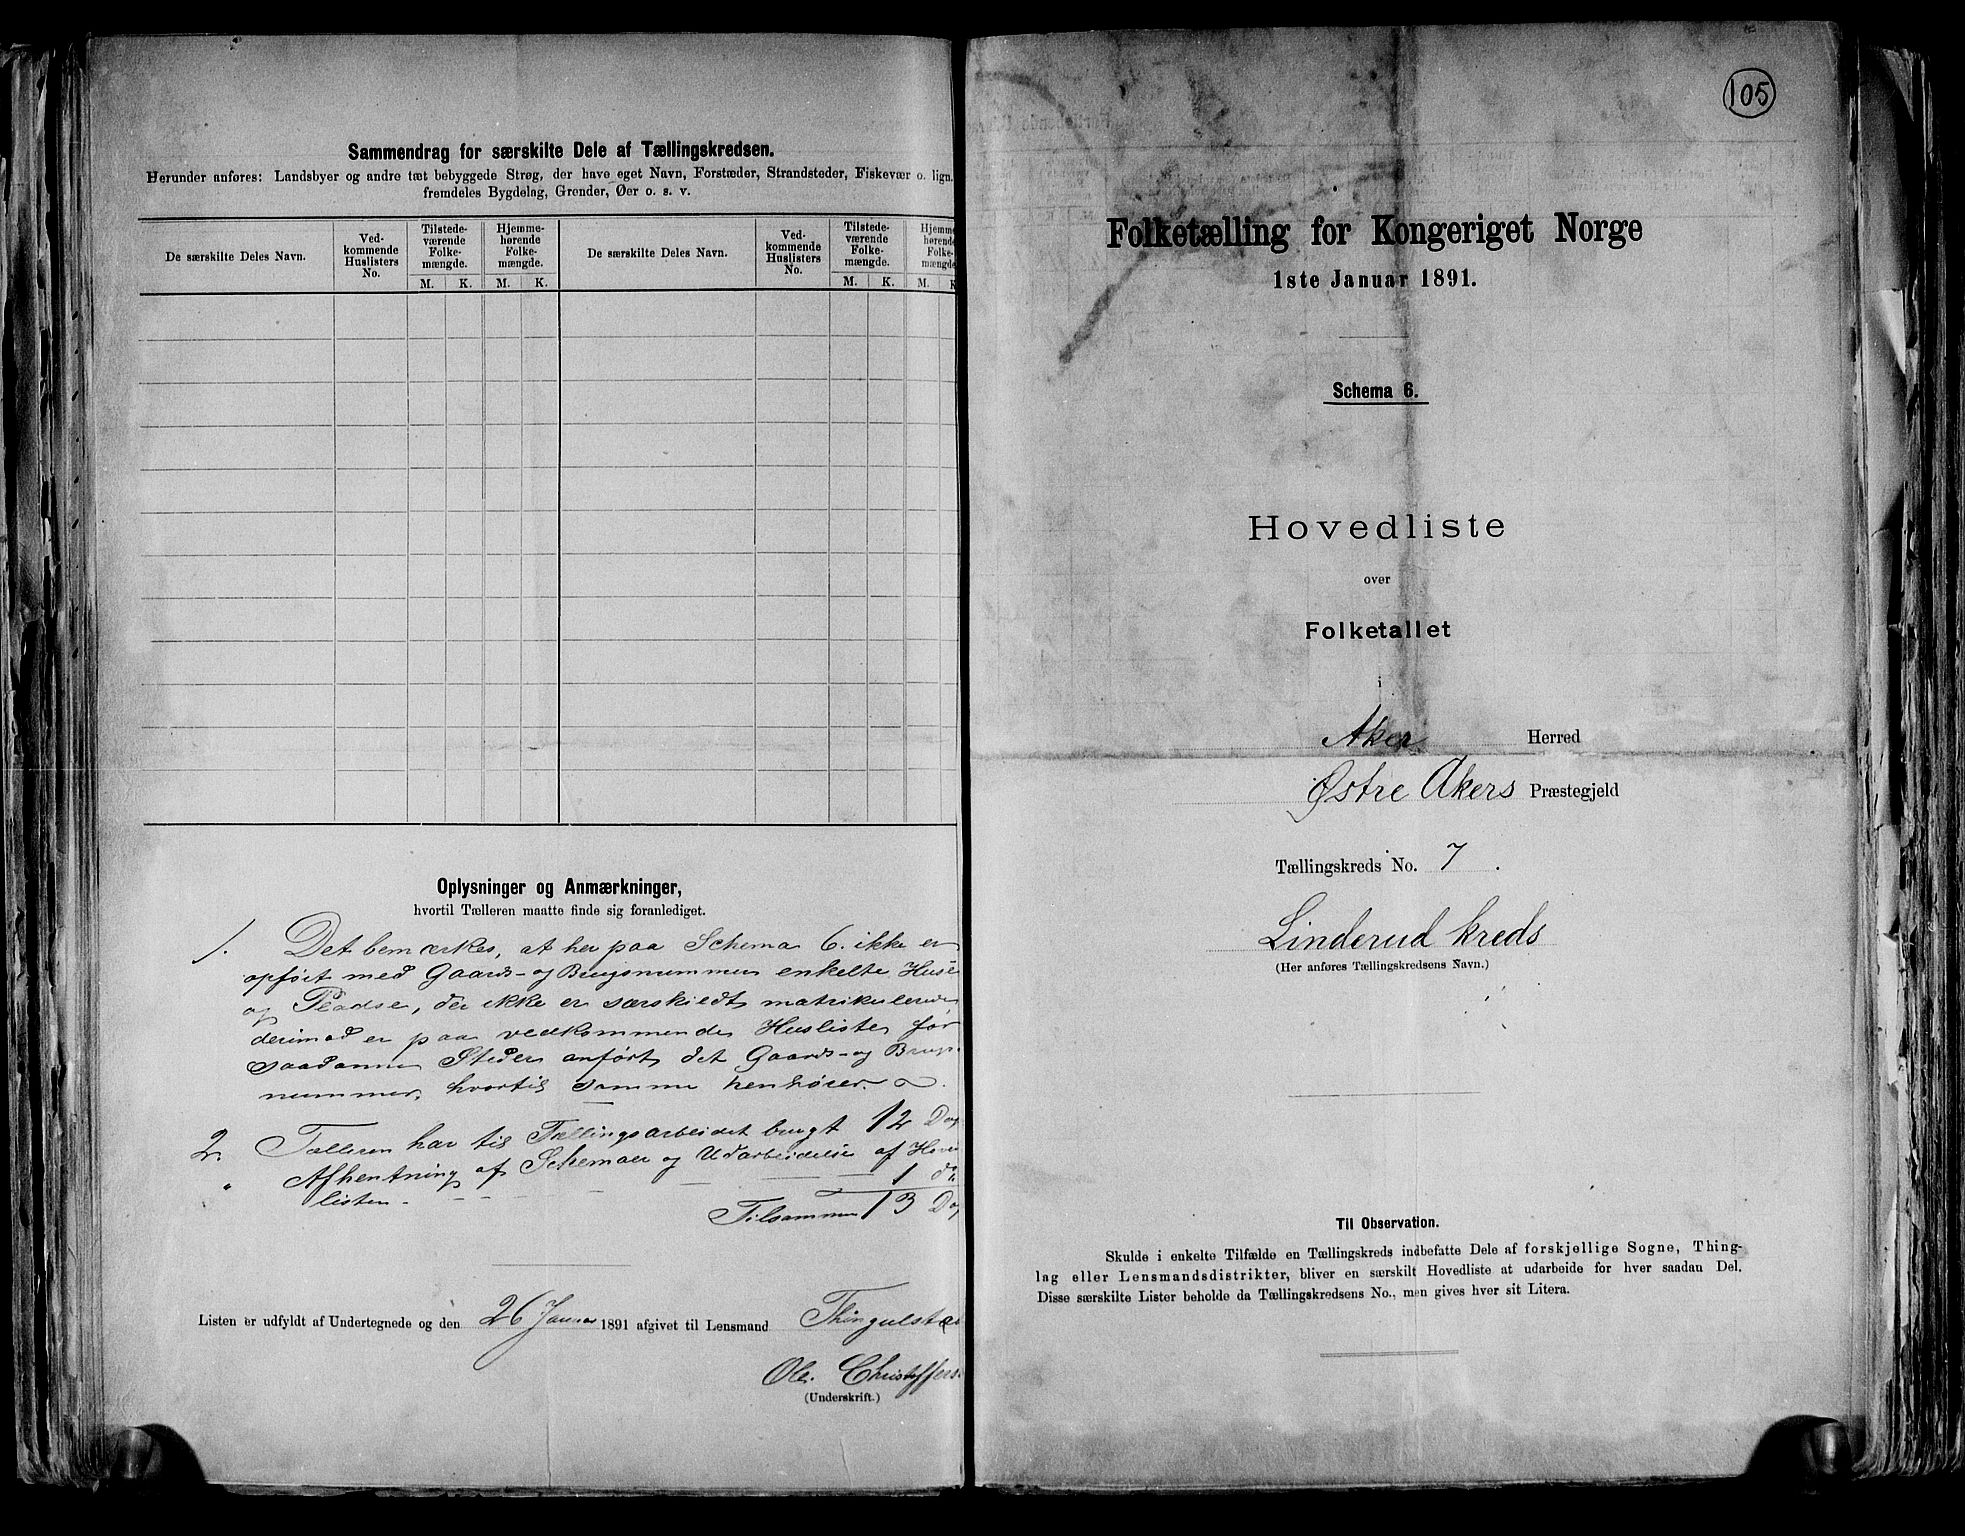 Sammendrag for særskilte Dele af Tællingskredsen.
Herunder anføres: Landsbyer og andre tæt bebyggede Strøg, der have eget Navn, Forstæder, Strandsteder, Fiskevær o. lign.
fremdeles Bygdelag, Grender, Øer o. s. v.
De særskilte Deles Navn.
Ved-
kommende
Huslisters
No.
Tilstede-
værende
Folke-
mængde.
Hjemme-
hørende
Folke-
mængde.
M. K. M. K.
De særskilte Deles Navn.
Ved-
kommende
Huslisters
No.
Tilstede-
værende
Folke-
mængde.
Hjemme
hørende
Folke-
mængde
M. K. M. K
Oplysninger og Anmærkninger,
hvortil Tælleren maatte finde sig foranlediget.
1. Det bemærkes, at her paa Schema 6. ikke er
opført med Gaards- og Brugsnummer enkelte Huse
og Pladse, der ikke er særskildt matrikulerede
derimod er paa vedkommende Husliste for
saadanne Steder anført det Gaards- og Brugs-
nummer, hvortil samme henhører.
2. Tælleren har til Tællingsarbeidet brugt 12 Dag
" Afhentning af Schemaer og Udarbeidelse af Hoved
listen - 1 do
Tilsammen 13 Dag
Listen er udfyldt af Undertegnede og den 26 Januar 1891 afgivet til Lensmand Thingulstad
Ole Christoffers
(Underskrift.)
105
Folketælling for Kongeriget Norge
1ste Januar 1891.
Schema 6.
Hovedliste
over
Folketallet
i
Aker Herred
Østre Akers Præstegjeld
Tællingskreds No. 7.
Linderud kreds
(Her anføres Tællingskredsens Navn.)
Til Observation.
Skulde i enkelte Tilfælde en Tællingskreds indbefatte Dele af forskjellige Sogne, Thing-
lag eller Lensmandsdistrikter, bliver en særskilt Hovedliste at udarbeide for hver saadan Del.
Disse særskilte Lister beholde da Tællingskredsens No., men gives hver sit Litera.